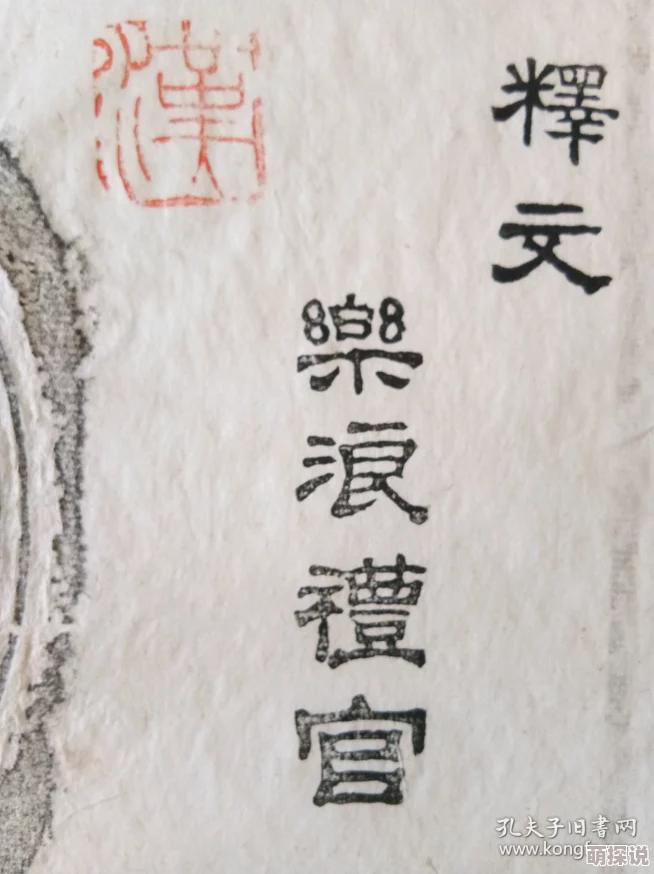 釋文
樂浪禮官
漢
孔夫子旧書网
www.kongf
萌探说